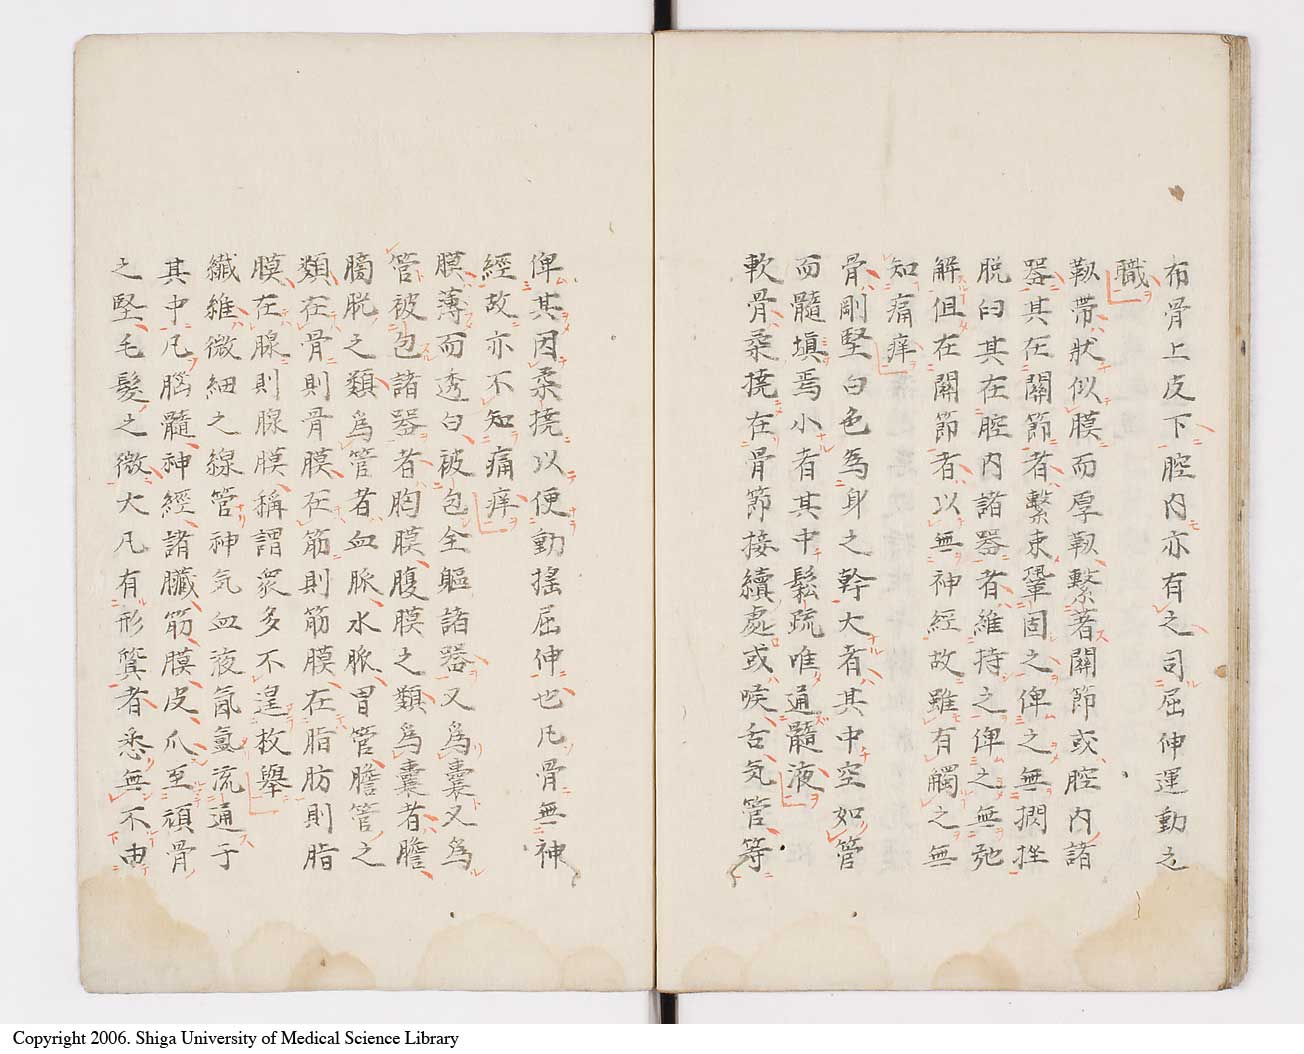 布骨上皮下腔内亦有之司屈伸運動之
職
靱帯状似膜而厚靱繋著關節或腔内諸
器其在關節者繋束鞏固之俾之無捫挫
脱臼其在腔内諸器者維持之俾之無弛
解但在關節者以無神經故雖有觸之無
知痛痒
骨剛堅白色為身之幹大者其中空如管
而髓塡焉小者其中鬆疏唯通髓液
軟骨柔撓在骨節接續處或喉舌気管等
俾其因柔撓以便動揺屈伸也凡骨無神
經故亦不知痛痒
膜薄而透白被包全軀諸器又為囊又為
管被包諸器者胸膜腹膜之類為囊者膽
膀胱之類為管者血脈水脈胃管膽管之
類在骨則骨膜在筋則筋膜在脂肪則脂
膜在腺則腺膜稱謂衆多不遑枚舉
纎維微細之線管神気血液氤氳流通于
其中凡腦髓神經諸臟筋膜皮爪至頑骨
之堅毛髮之微大凡有形質者悉無不由
Copyright 2006. Shiga University of Medical Science Library